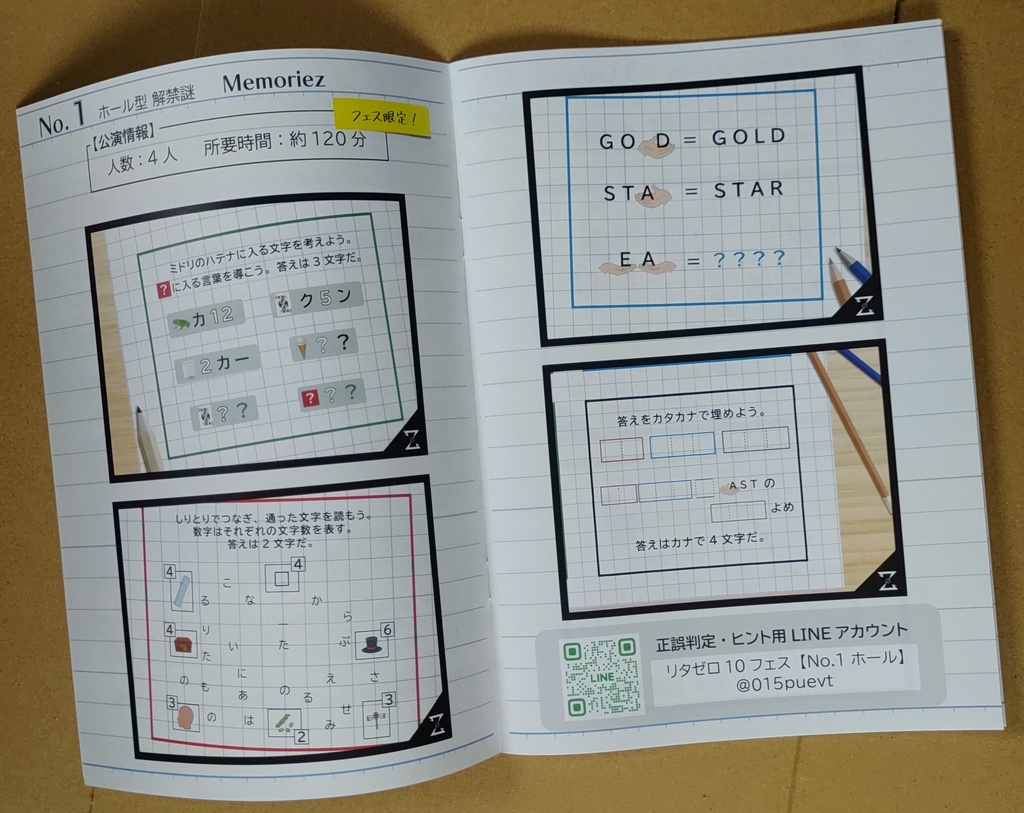 No. 1 ホール型 解禁謎 Memoriez
フェス限定!
【公演情報】
人数:4人 所要時間:約120分
ミドリのハテナに入る文字を考えよう。
?に入る言葉を導こう。答えは3文字だ。
カ12
ク5ン
2カー
??
??
???
しりとりでつなぎ、通った文字を読もう。
数字はそれぞれの文字数を表す。
答えは2文字だ。
4
4
こ
る
な
か
ら
4
り
い
一
た
ぷ
6
た
に
え
さ
の
も
あ
の
る
せ
3
の
は
2
み
3
GO D = GOLD
STA = STAR
EA = ????
答えをカタカナで埋めよう。
ASTの
よめ
答えはカナで4文字だ。
LINE
正誤判定・ヒント用LINEアカウント
リタゼロ10フェス【No.1 ホール】
@015puevt